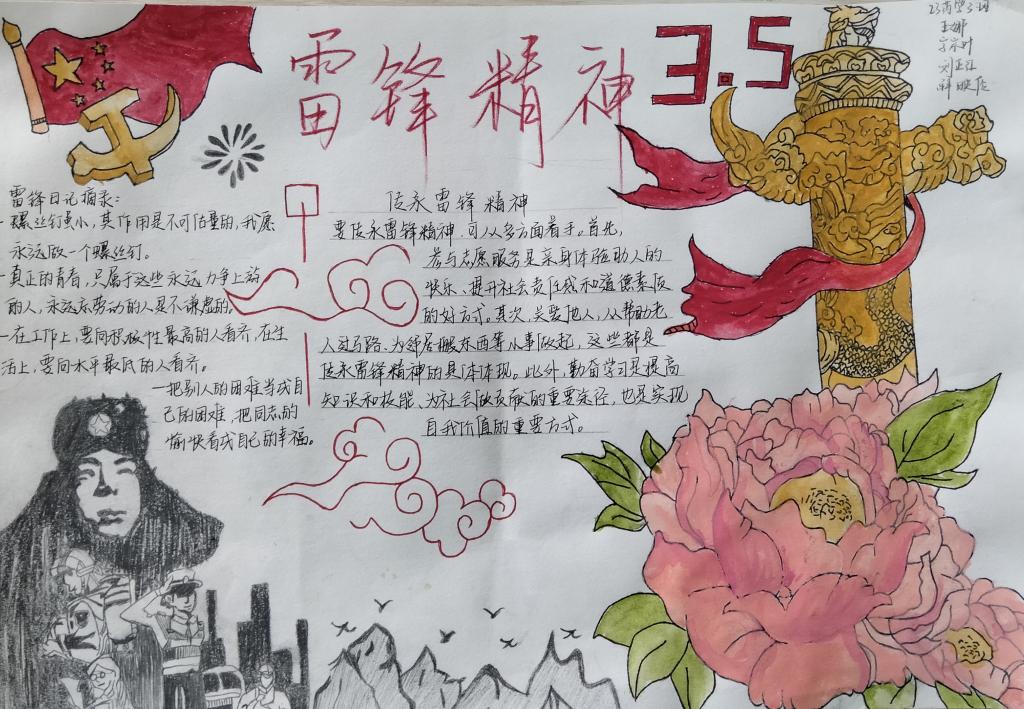 雷锋精神
3.5
雷锋日记摘录:
一螺丝钉虽小,其作用是不可估量的,我愿
永远做一个螺丝钉。
一真正的青春,只属于这些永远力争上游
的人,永远忘我劳动的人是不谦虚的。
一在工作上,要向积极性最高的人看齐,在生
活上,要向水平最低的人看齐。
一把别人的困难当成自
己的困难,把同志的
愉快看成自己的幸福。
传承雷锋精神
要传承雷锋精神,可从多方面着手。首先,
参与志愿服务是亲身体验助人的
快乐、提升社会责任感和道德素质
的好方式。其次,关爱他人,从帮助老
人过马路、为邻居搬东西等小事做起,这些都是
传承雷锋精神的具体体现。此外,勤奋学习是提高
知识和技能、为社会做贡献的重要途径,也是实现
自我价值的重要方式。
王娜